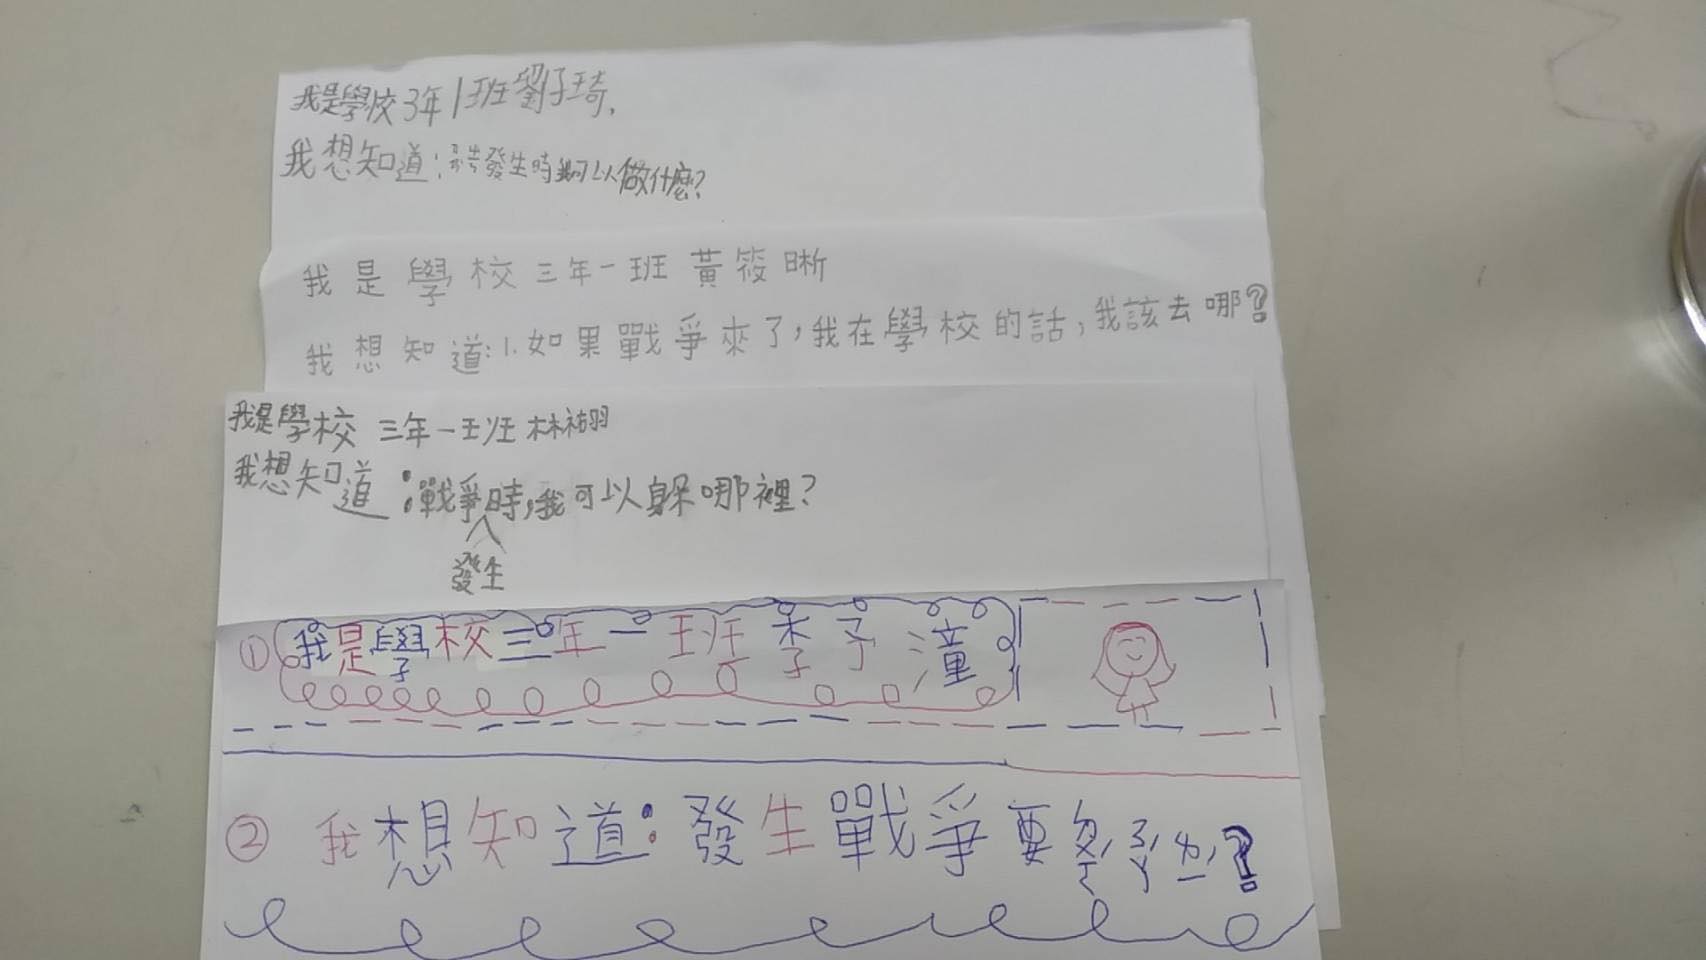 我是學校3年1班劉子琦,
我想知道:發生時我可以做什麼?
我是學校三年一班黃筱晰
我想知道:1.如果戰爭來了,我在學校的話,我該去哪?
我是學校三年一班林
我想知道:戰爭時,我可以躲哪裡?
發生
①我是學校三年一班李子潼
②我想知道:發生戰爭要?